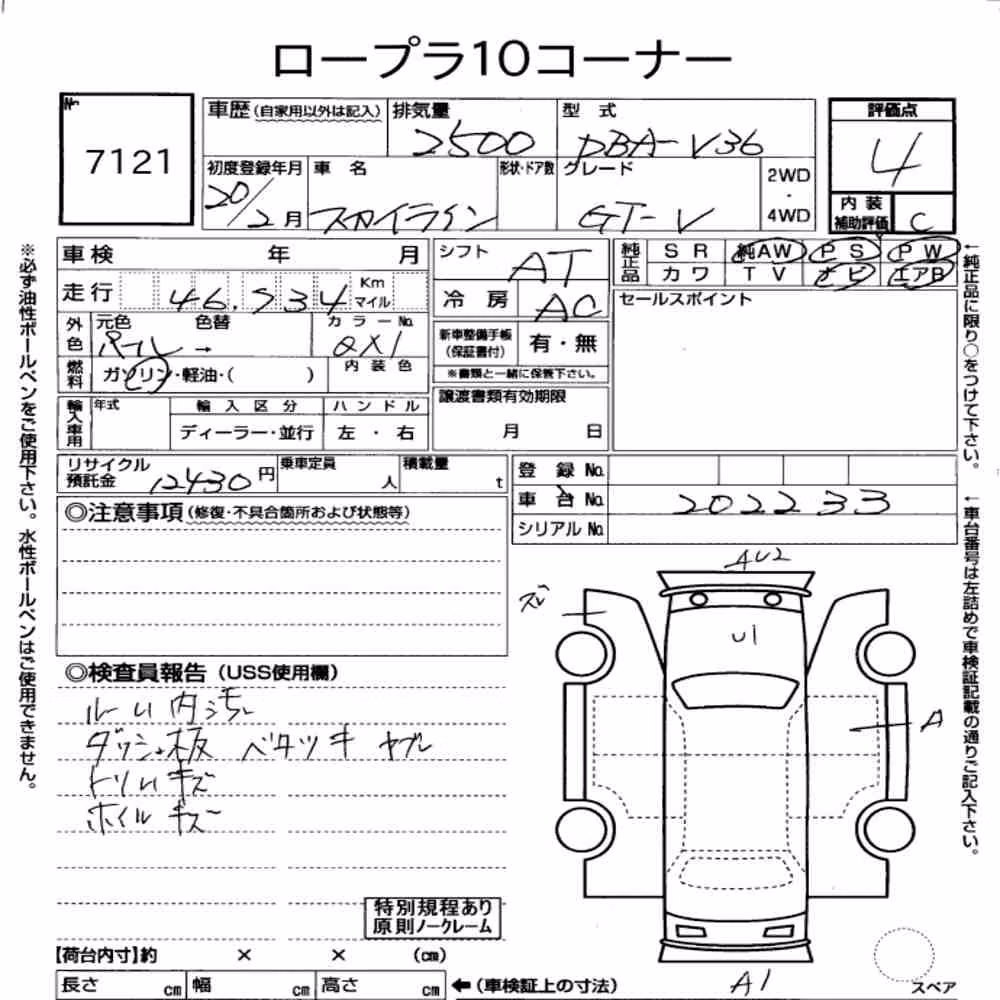 ロープラ10コーナー
7121
車歴(自家用以外は記入) 排気量 型 式 評価点
2500 DBA-V36 4
初度登録年月 車 名 形状・ドア数 グレード 2WD・4WD 内装補助評価 C
20/2月 スカイライン GT-V
車検 年 月 シフト AT 純正品 SR 純AW PS PW
カワ TV ナビ エアB
走行 46,534 Km マイル 冷房 AC セールスポイント
外色 元色 色替 カラーNo. 新車整備手帳(保証書付) 有・無
パール → QX1 ※書類と一緒に保管下さい。
燃料 ガソリン・軽油・( ) 内装色
譲渡書類有効期限
月 日
輸入車用 年式 輸入区分 ハンドル
ディーラー・並行 左・右
リサイクル預託金 12430円 乗車定員 人 積載量 t 登録No.
車台No. 202233
シリアルNo.
◎注意事項(修復・不具合箇所および状態等)
◎検査員報告(USS使用欄)
ダッシュ板 ベタツキ ヤブレ
トリムキズ
ホイルキズ
特別規程あり
原則ノークレーム
【荷台内寸】約 × × (cm)
長さ cm 幅 cm 高さ cm ←(車検証上の寸法)
AU2
ズレ
U1
A
A1
スペア
※必ず油性ボールペンをご使用下さい。水性ボールペンはご使用できません。
←純正品に限り○をつけて下さい。
←車台番号は左詰めで車検証記載の通りご記入下さい。